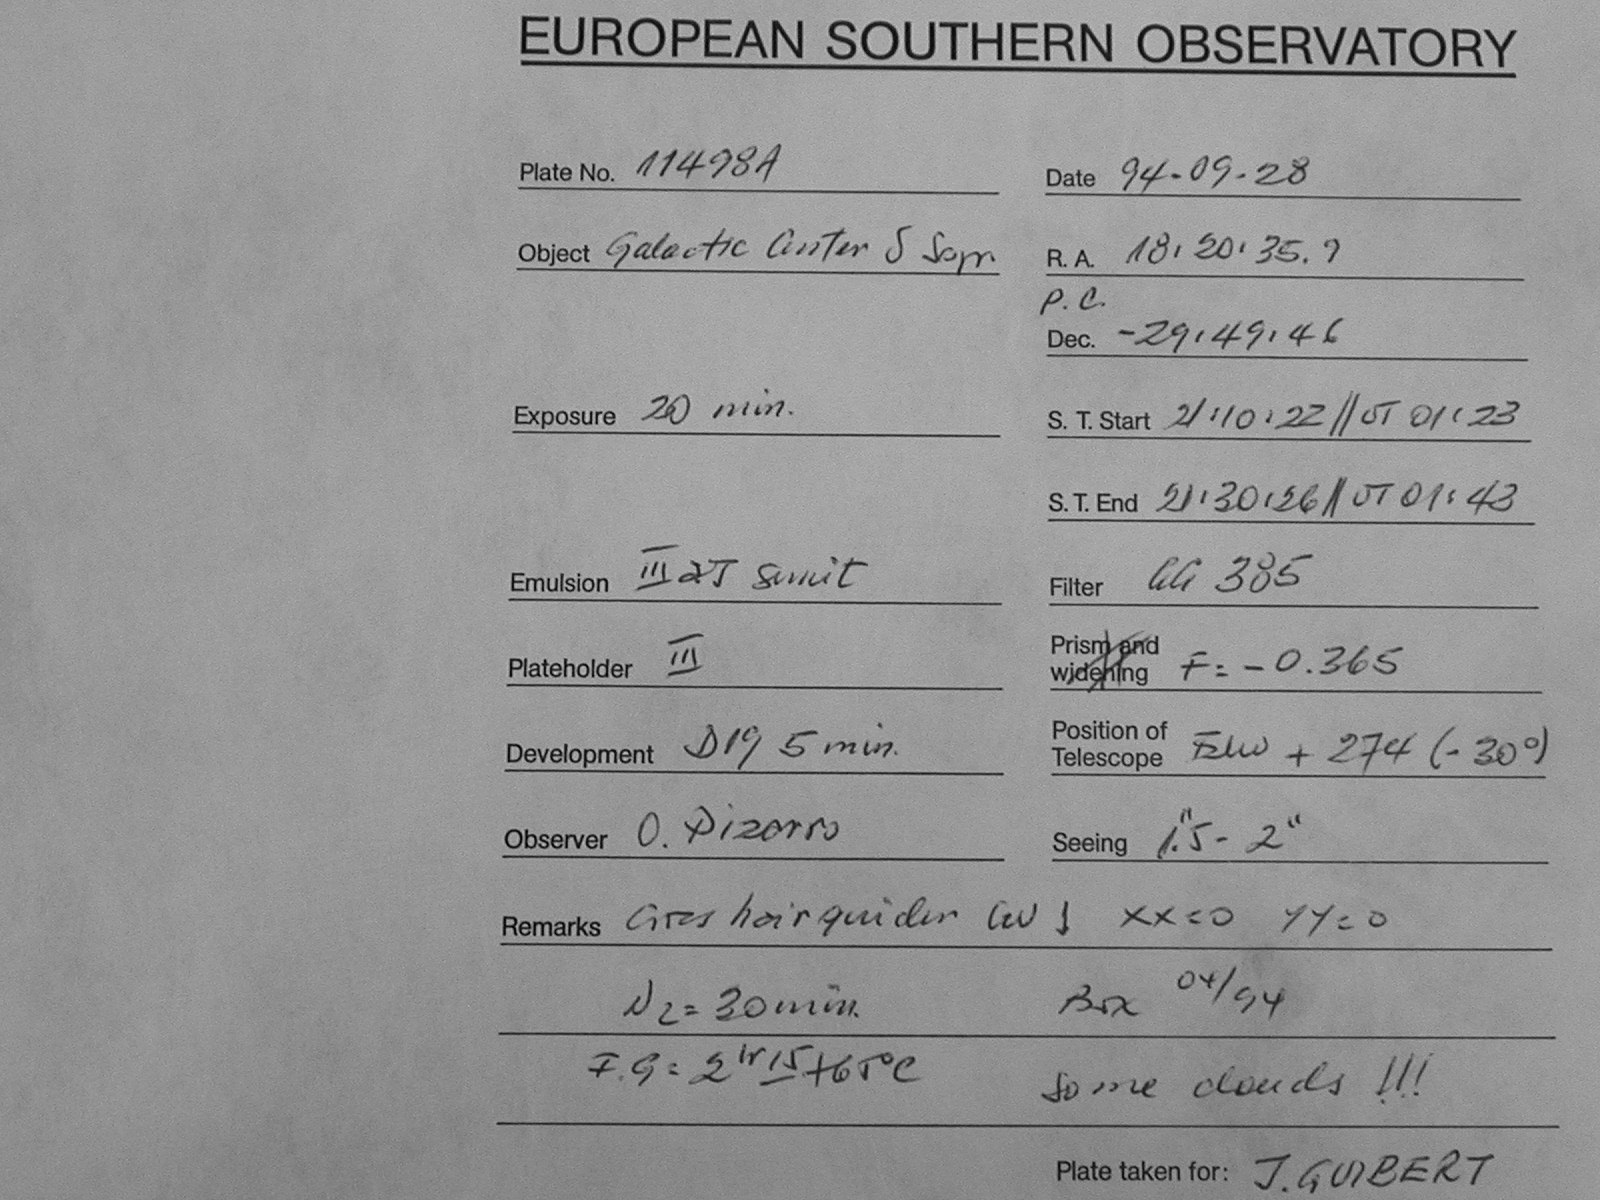 EUROPEAN SOUTHERN OBSERVATORY
Plate No. 11498A Date 94-09-28
Object Galactic Center S Sgr. R. A. 18:20:35.9
P.C.
Dec. -29:49:46
Exposure 20 min. S. T. Start 21:10:22 // UT 01:23
S. T. End 21:30:26 // UT 01:43
Emulsion III aJ Filter GG 385
Plateholder III Prism and widening F= -0.365
Development D19 5 min. Position of Telescope + 274 (-30°)
Observer O. Pizarro Seeing 1."5 - 2"
Remarks hair guider XX=0 YY=0
N2=30 min. Box 04/94
F.G= 2hr 15 +65°C some clouds !!!
Plate taken for: J. GUIBERT